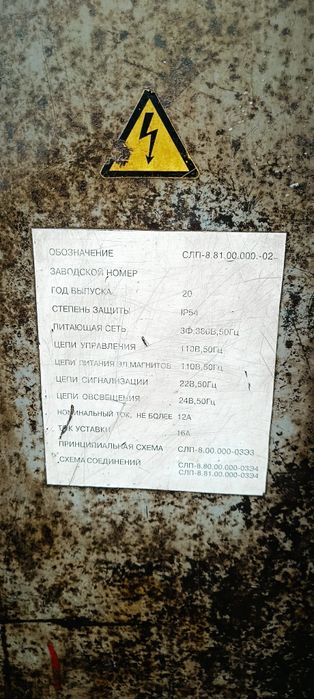 ОБОЗНАЧЕНИЕ СЛП-8.81.00.000.-02
ЗАВОДСКОЙ НОМЕР
ГОД ВЫПУСКА 20
СТЕПЕНЬ ЗАЩИТЫ IP54
ПИТАЮЩАЯ СЕТЬ 3Ф,380В,50Гц
ЦЕПИ УПРАВЛЕНИЯ 110В,50Гц
ЦЕПИ ПИТАНИЯ ЭЛ.МАГНИТОВ 110В,50Гц
ЦЕПИ СИГНАЛИЗАЦИИ 22В,50Гц
ЦЕПИ ОВСВЕЩЕНИЯ 24В,50Гц
НОМИНАЛЬНЫЙ ТОК, НЕ БОЛЕЕ 12А
ТОК УСТАВКИ 16А
ПРИНЦИПИАЛЬНАЯ СХЕМА СЛП-8.00.000-03ЭЗ
СХЕМА СОЕДИНЕНИЙ СЛП-8.80.00.000-03Э4
СЛП-8.81.00.000-03Э4